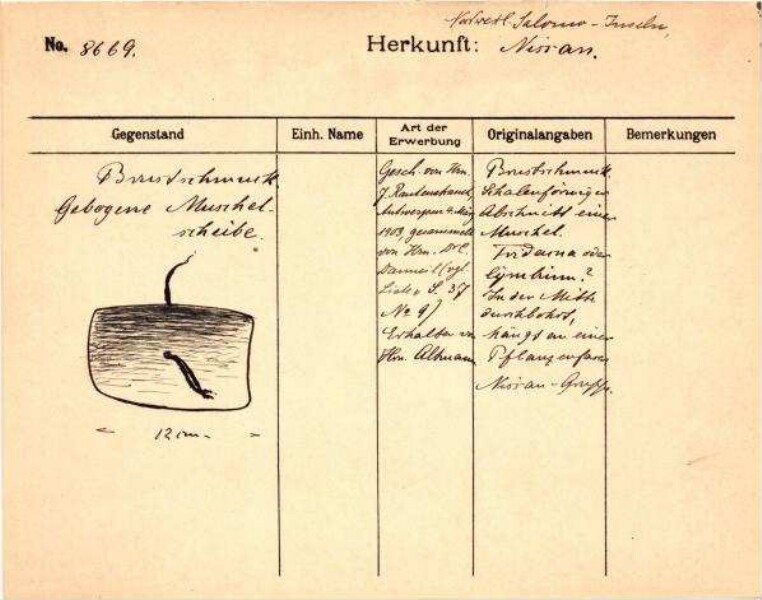 Nordwestl. Salomo-Inseln,
No. 8669.
Herkunft: Nissan.
Gegenstand
Einh. Name
Art der
Erwerbung
Originalangaben
Bemerkungen
Brustschmuck
Gebogene Muschel-
scheibe.
12 cm.
Gesch. von Hrn.
J. Rautenstrauch,
Antwerpen
1903, gesammelt
von Hrn. Dr.
(vgl.
Liste S. 37
No 9)
Erhalten von
Hrn. Altmann
Brustschmuck
Schalenförmiger
Abschnitt einer
Muschel.
Tridacna oder
Cymbium?
In der Mitte
durchbohrt,
hängt an einer
Pflanzenfaser
Nissan-Gruppe.